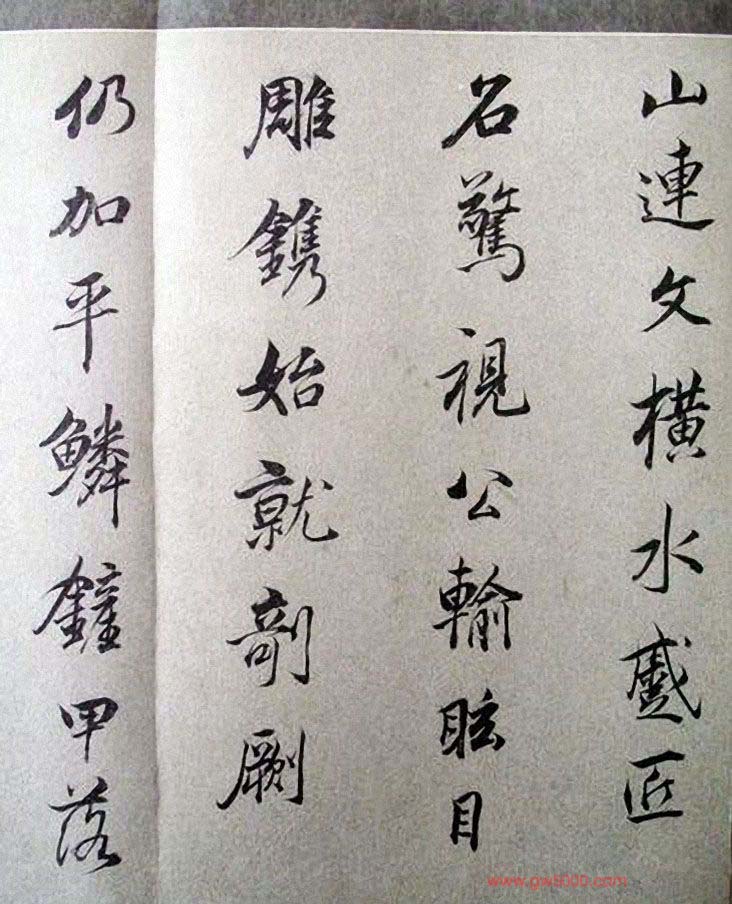 山連文橫水蹙匠
石驚視公輸眩目
雕鐫始就剞劂
仍加平鱗鏟甲落
www.gw5000.com